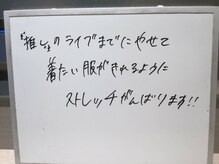 『推し』のライブまでにやせて
着たい服がきれるように
ストレッチがんばります!!